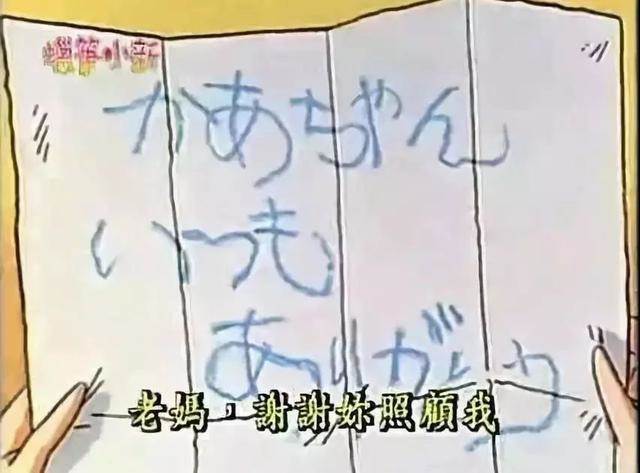 蠟筆小新
かあちゃん
いつも
ありがとう
老媽，謝謝妳照顧我